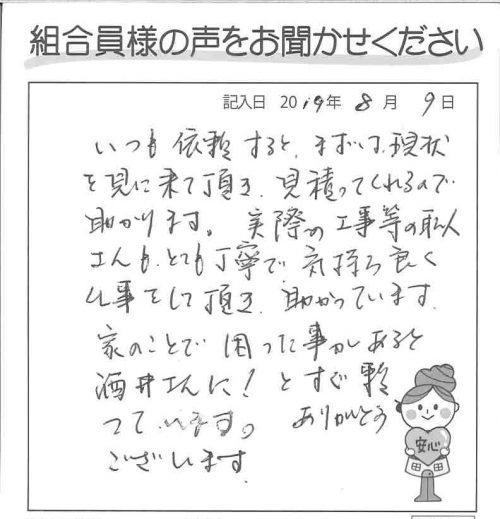 組合員様の声をお聞かせください
記入日 2019年 8月 9日
いつも依頼すると、まずは現状
を見に来て頂き、見積ってくれるので
助かります。実際の工事等の職人
さんも、とても丁寧で気持ち良く
仕事をして頂き、助かっています。
家のことで困った事があると
酒井さんに!とすぐ頼
っています。ありがとう
ございます。
安心